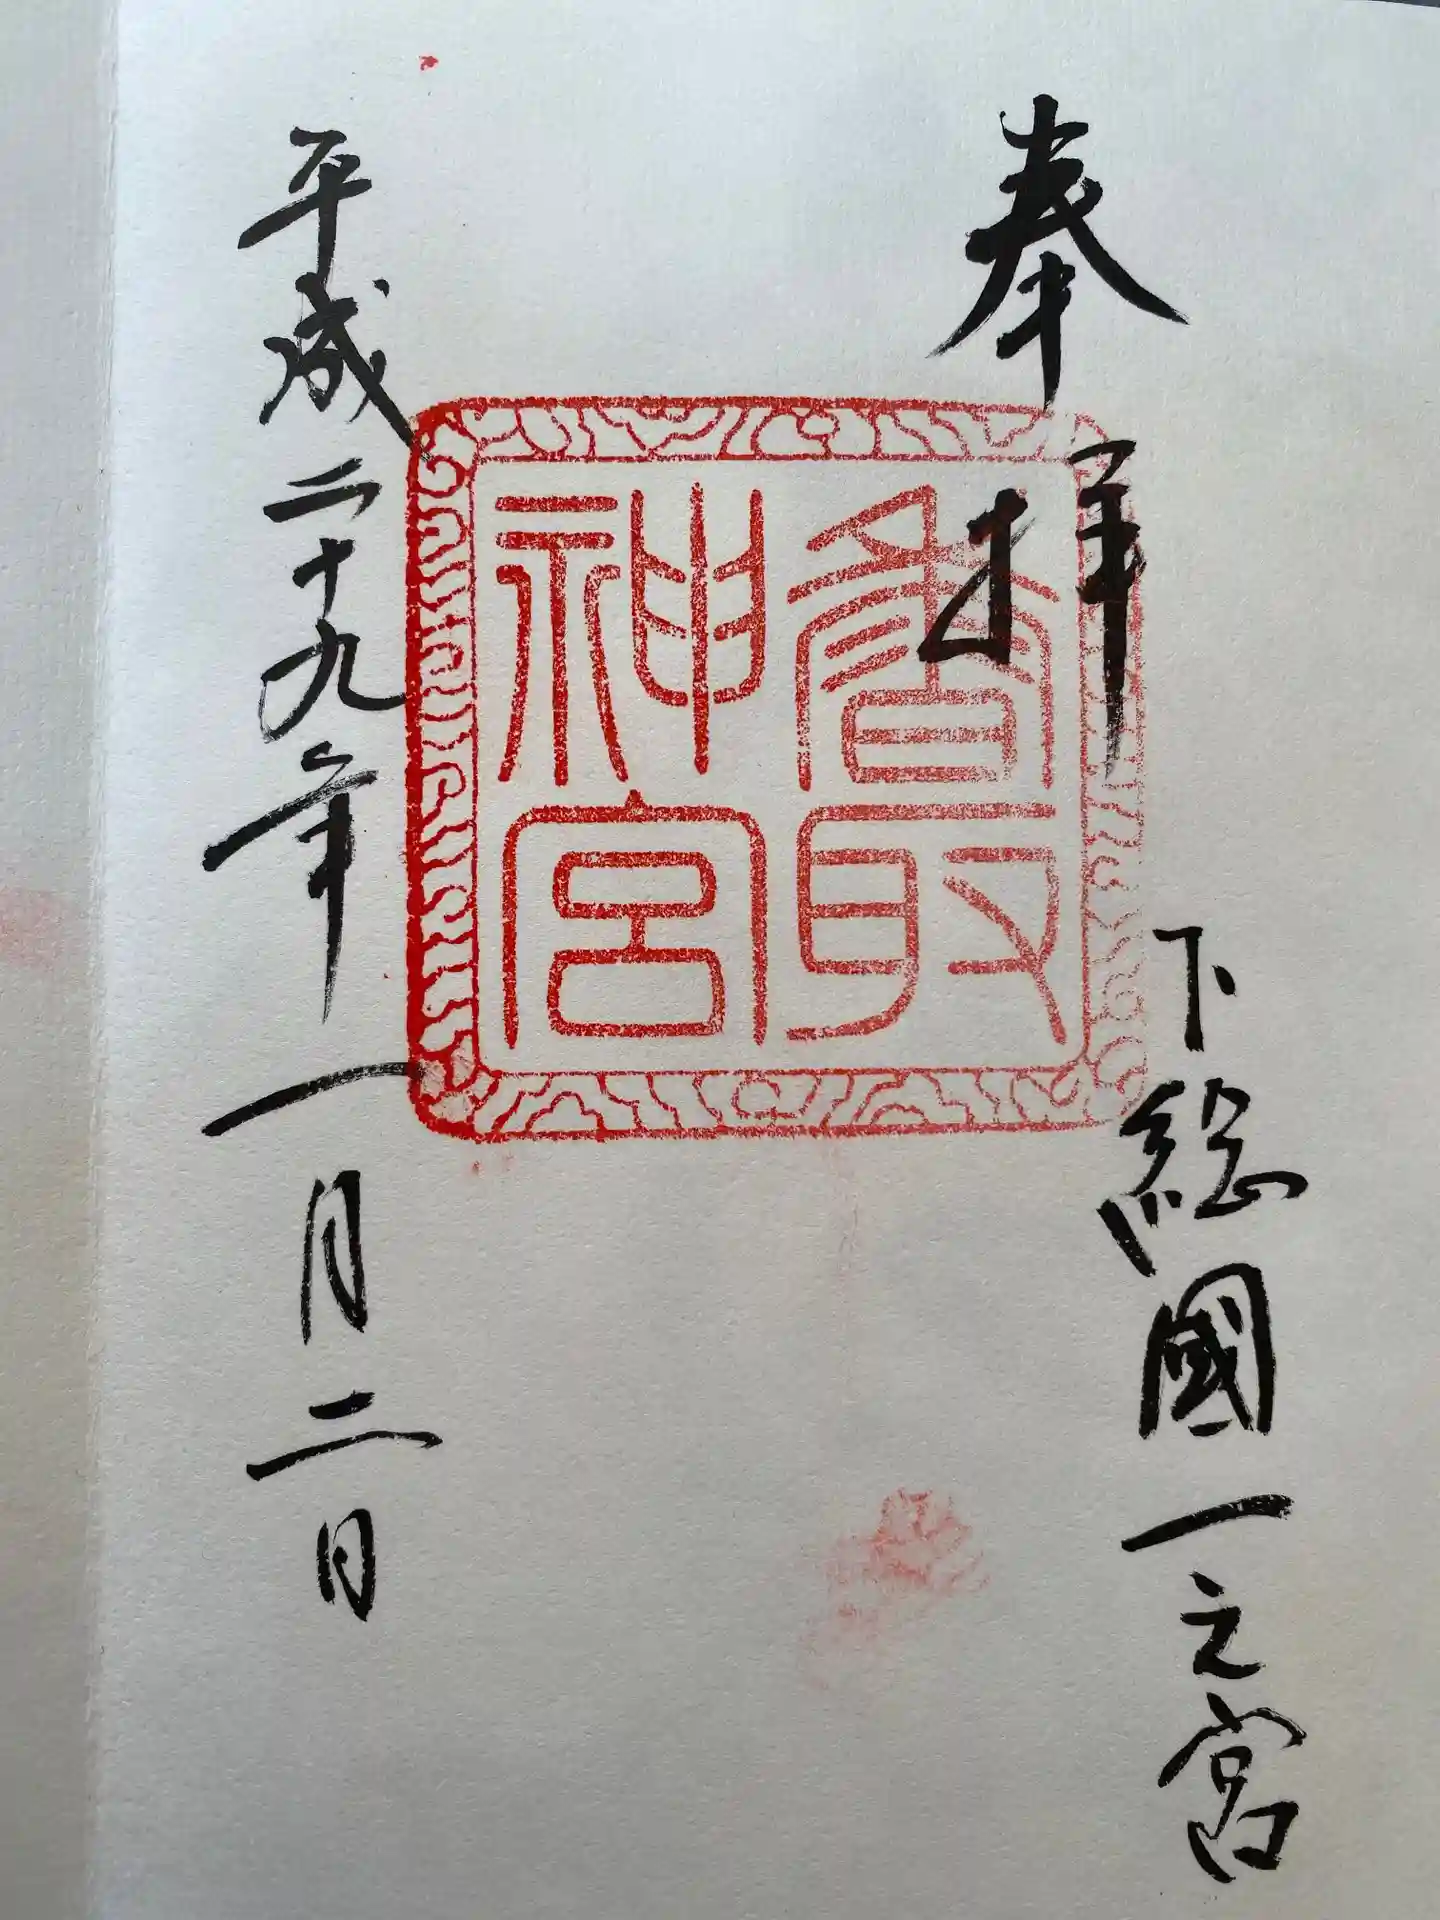 奉拝
下総國一之宮
香取
神宮
平成二十九年一月二日